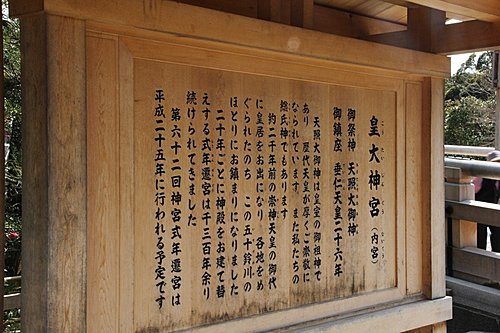 皇大神宮（内宮）
こうたいじんぐう ないくう
御祭神　天照大御神
御鎮座　垂仁天皇二十六年
天照大御神は皇室の御祖神で
あり　歴代天皇が厚くご崇敬に
なられています　また私たちの
総氏神でもあります
約二千年前の崇神天皇の御代
に皇居をお出になり　各地をめ
ぐられたのち　この五十鈴川の
ほとりにお鎮まりになりました
二十年ごとに神殿をお建て替
えする式年遷宮は千三百年余り
続けられてきました
第六十二回神宮式年遷宮は
平成二十五年に行われる予定です